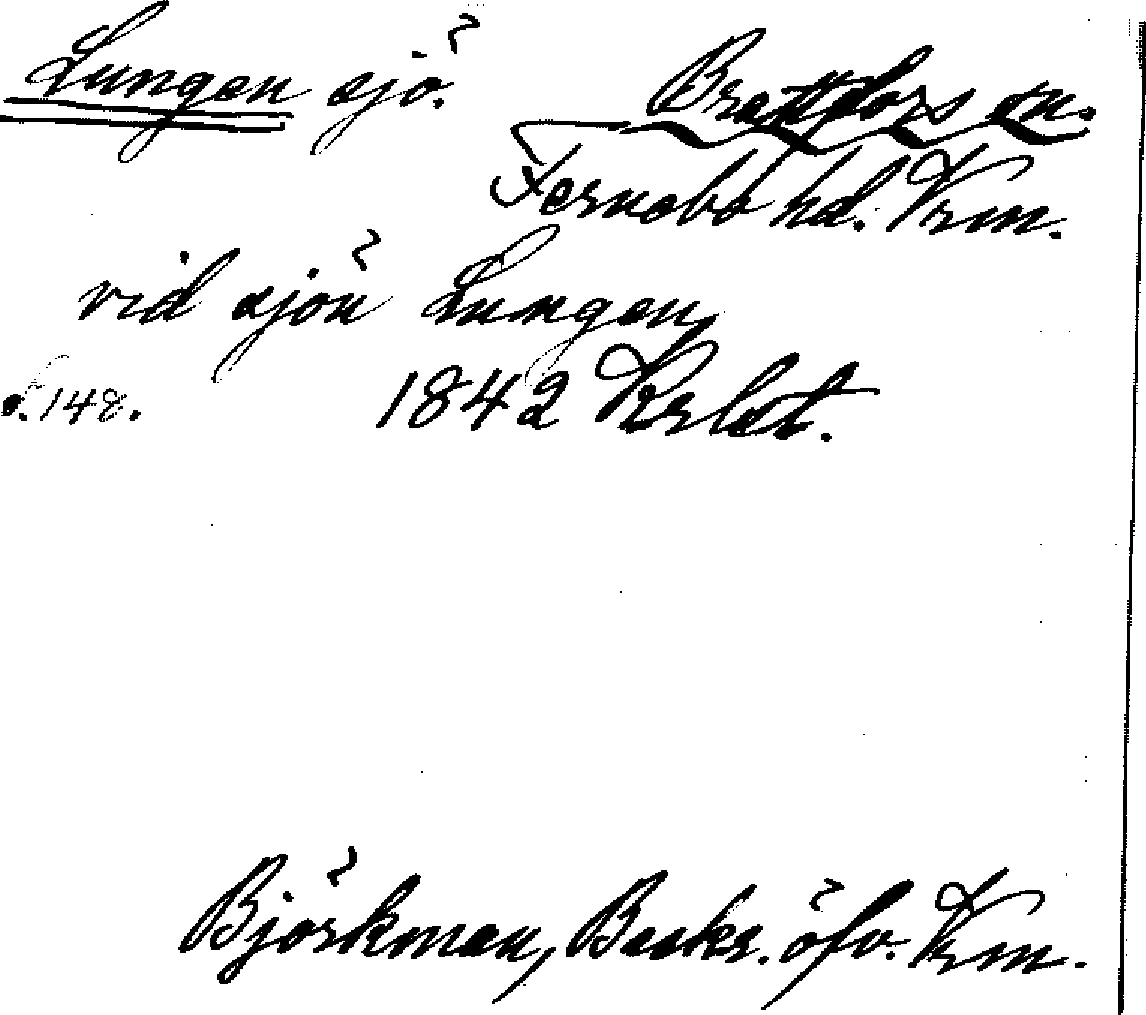 Lungen sjö. Brattfors sn.
Fernebo hd. Vrm.
vid sjön Lungen,
s. 148. 1842
Björkman, Beskr. öfv. Vrm.